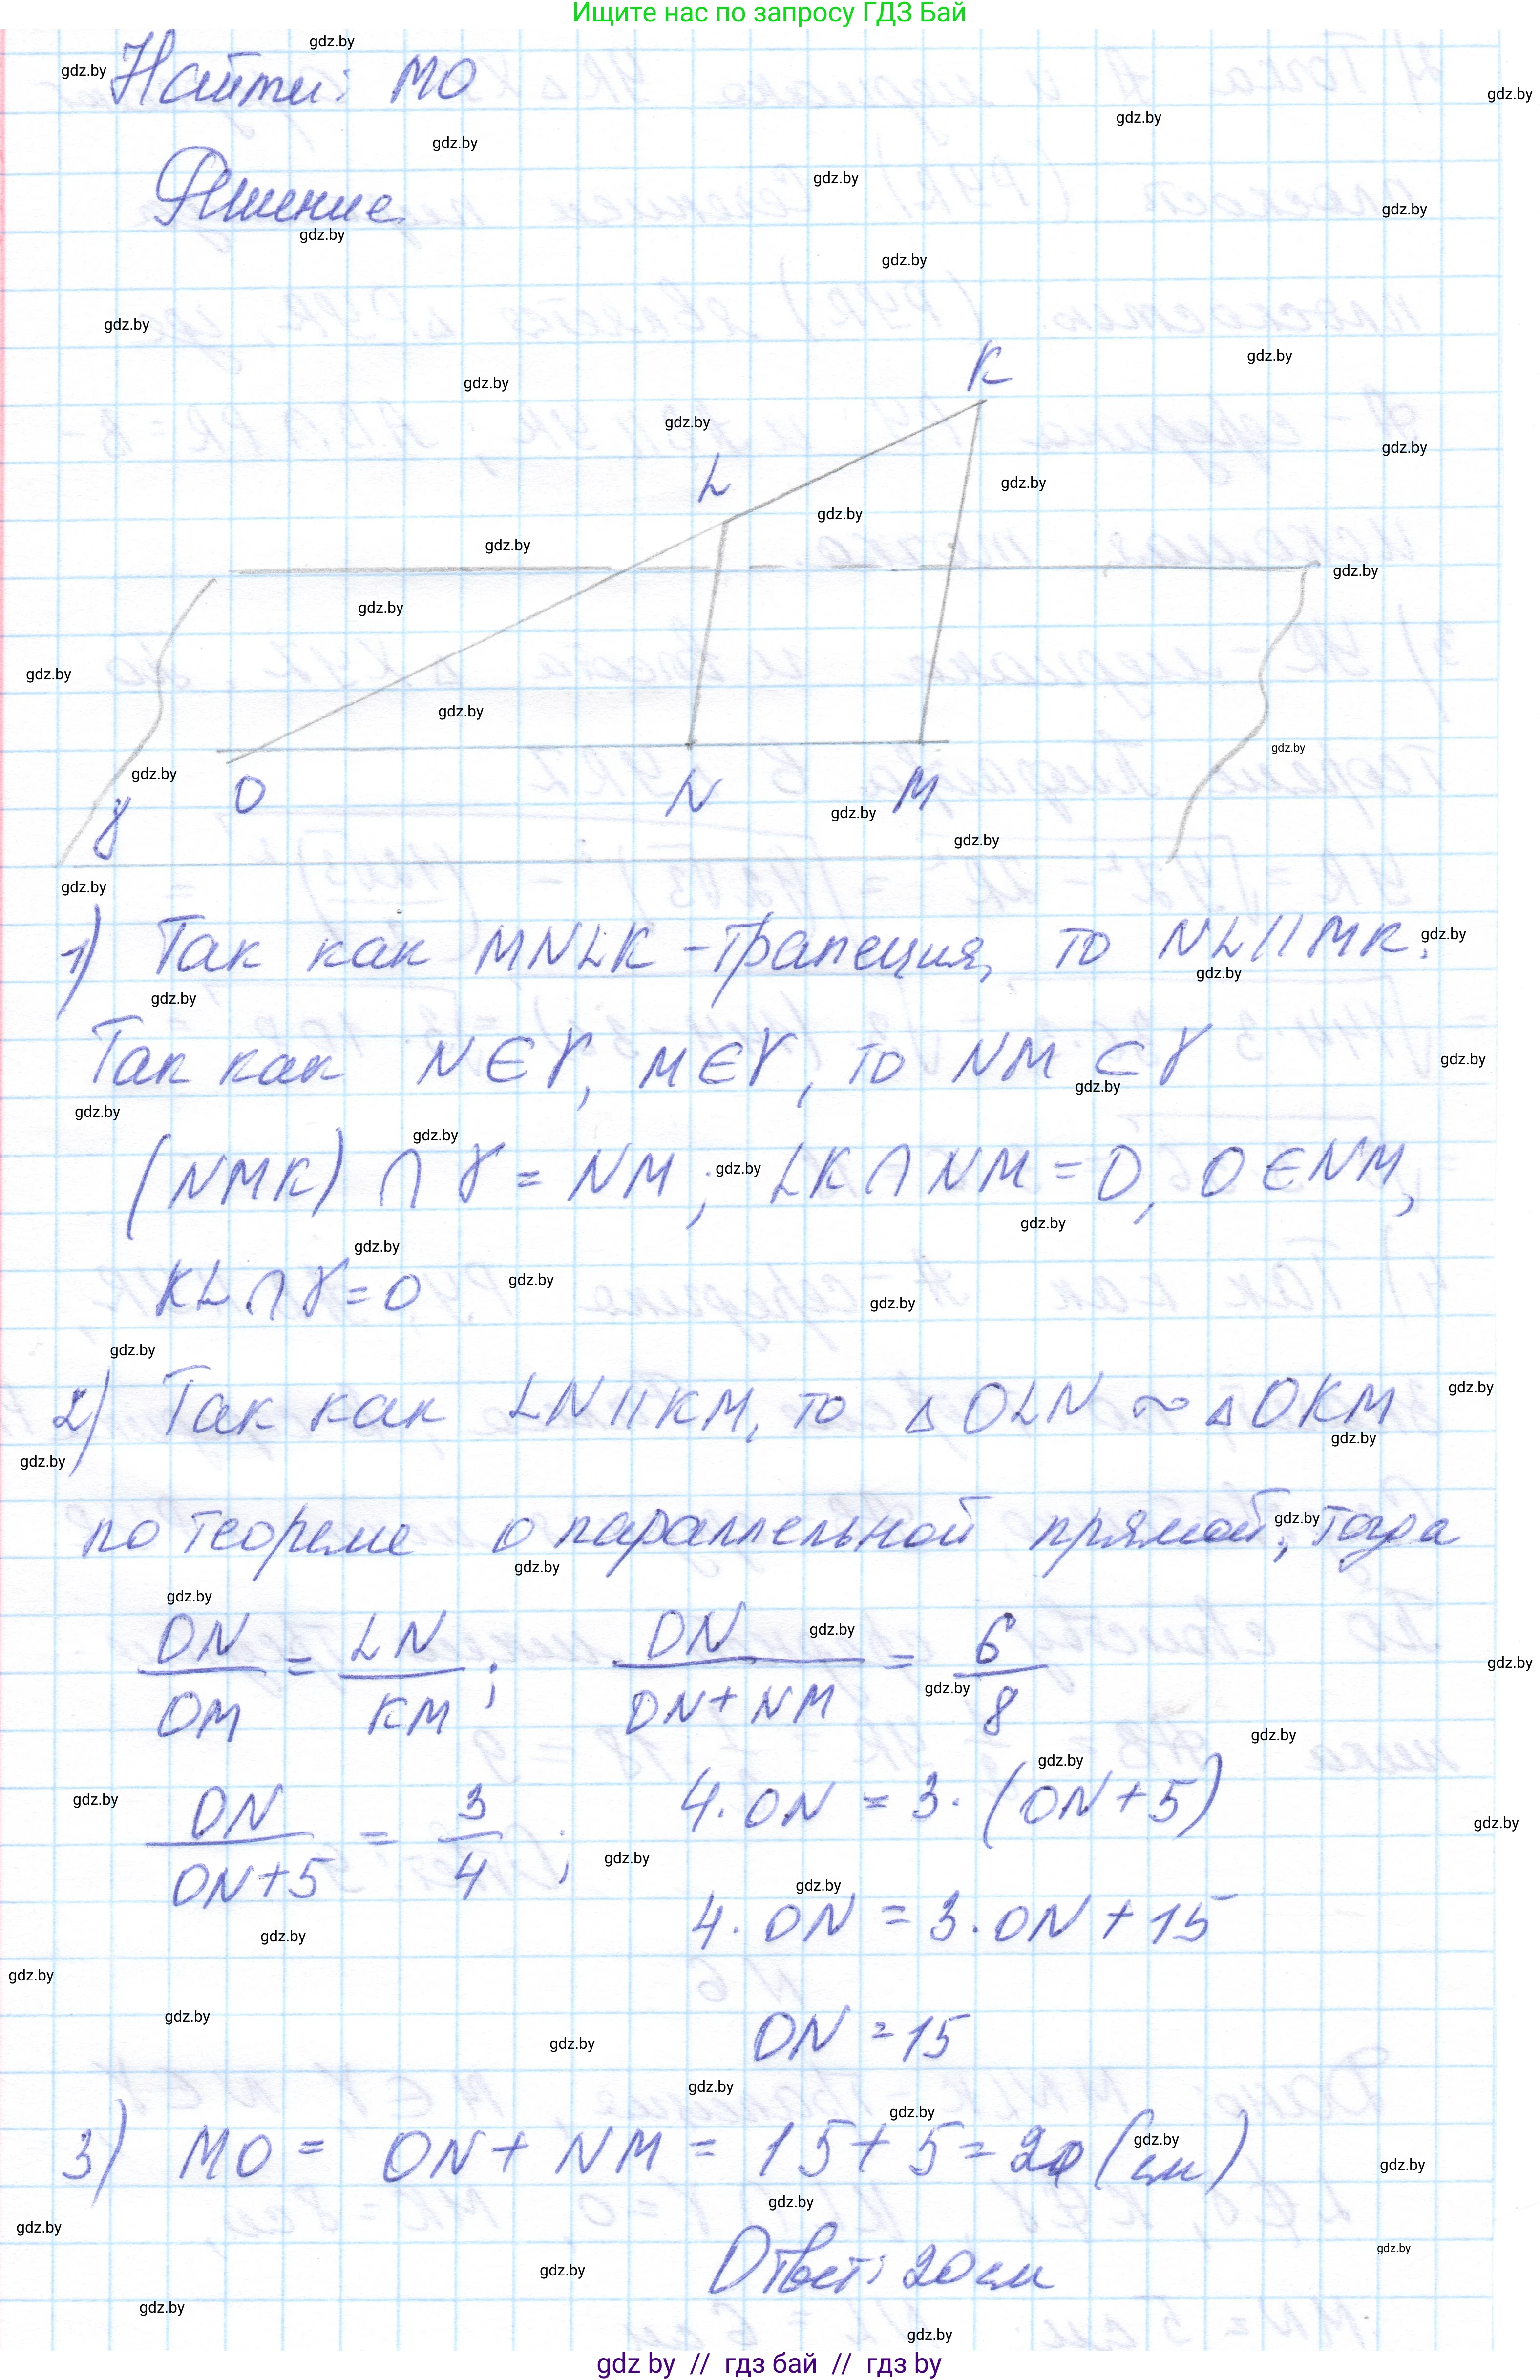 Ищите нас по запросу ГДЗ Бай
Найти: MO
Решение
K
L
O
N
M
γ
1) Так как MNLK - трапеция, то NL || MK.
Так как N ∈ γ, M ∈ γ, то NM ⊂ γ
(NMK) ∩ γ = NM; LK ∩ NM = O, O ∈ NM,
KL ∩ γ = O
2) Так как LN || KM, то △OLN ~ △OKM
по теореме о параллельной прямой, тогда
ON/OM = LN/KM; ON/(ON+NM) = 6/8
ON/(ON+5) = 3/4; 4·ON = 3·(ON+5)
4·ON = 3·ON + 15
ON = 15
3) MO = ON + NM = 15 + 5 = 20 (см)
Ответ: 20 см
gdz by // гдз бай // гдз by